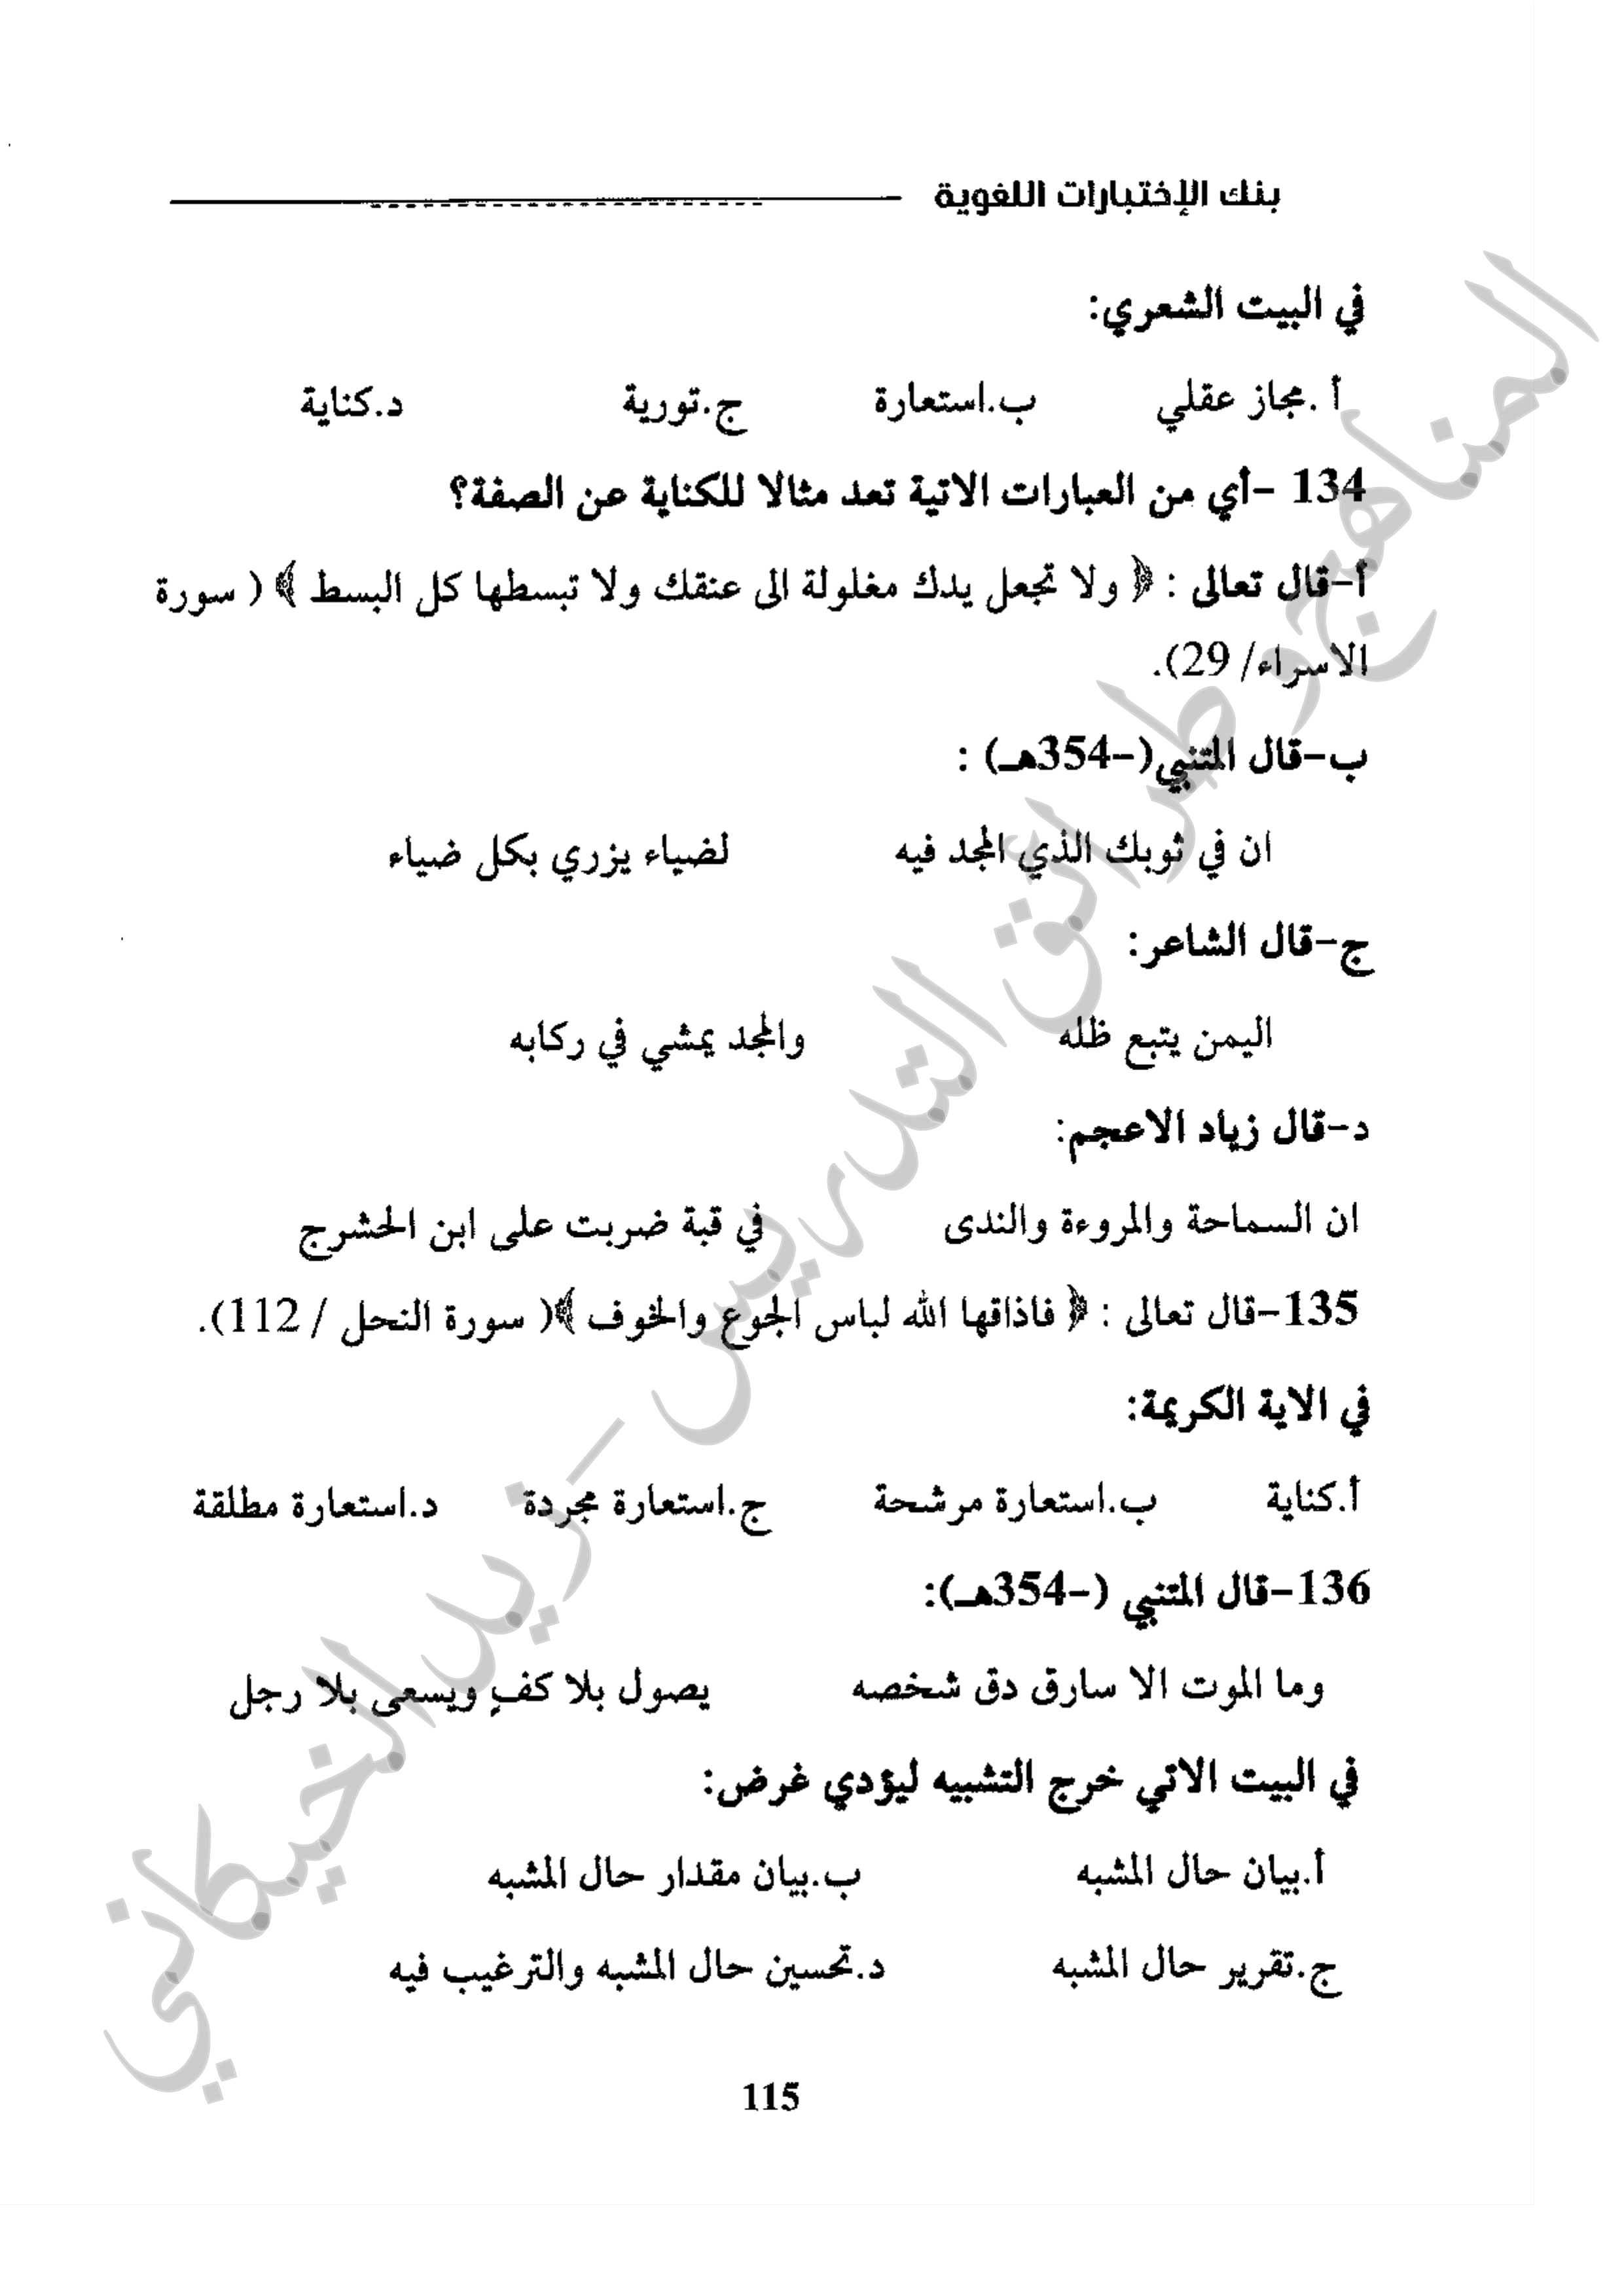 بنك الإختبارات اللغوية
في البيت الشعري:
أ .مجاز عقلي ب.استعارة ج.تورية د.كناية
134 -أي من العبارات الاتية تعد مثالا للكناية عن الصفة؟
أ-قال تعالى : ﴿ ولا تجعل يدك مغلولة الى عنقك ولا تبسطها كل البسط ﴾ ( سورة
الاسراء/ 29).
ب-قال المتنبي(-354هـ) :
ان في ثوبك الذي المجد فيه لضياء يزري بكل ضياء
ج-قال الشاعر:
اليمن يتبع ظله والمجد يمشي في ركابه
د-قال زياد الاعجم:
ان السماحة والمروءة والندى في قبة ضربت على ابن الحشرج
135-قال تعالى : ﴿ فاذاقها الله لباس الجوع والخوف ﴾( سورة النحل / 112).
في الاية الكريمة:
أ.كناية ب.استعارة مرشحة ج.استعارة مجردة د.استعارة مطلقة
136-قال المتنبي (-354هـ):
وما الموت الا سارق دق شخصه يصول بلا كفٍ ويسعى بلا رجل
في البيت الاتي خرج التشبيه ليؤدي غرض:
أ.بيان حال المشبه ب.بيان مقدار حال المشبه
ج.تقرير حال المشبه د.تحسين حال المشبه والترغيب فيه
115
المناهج وطرائق التدريس - زيد الخيكاني